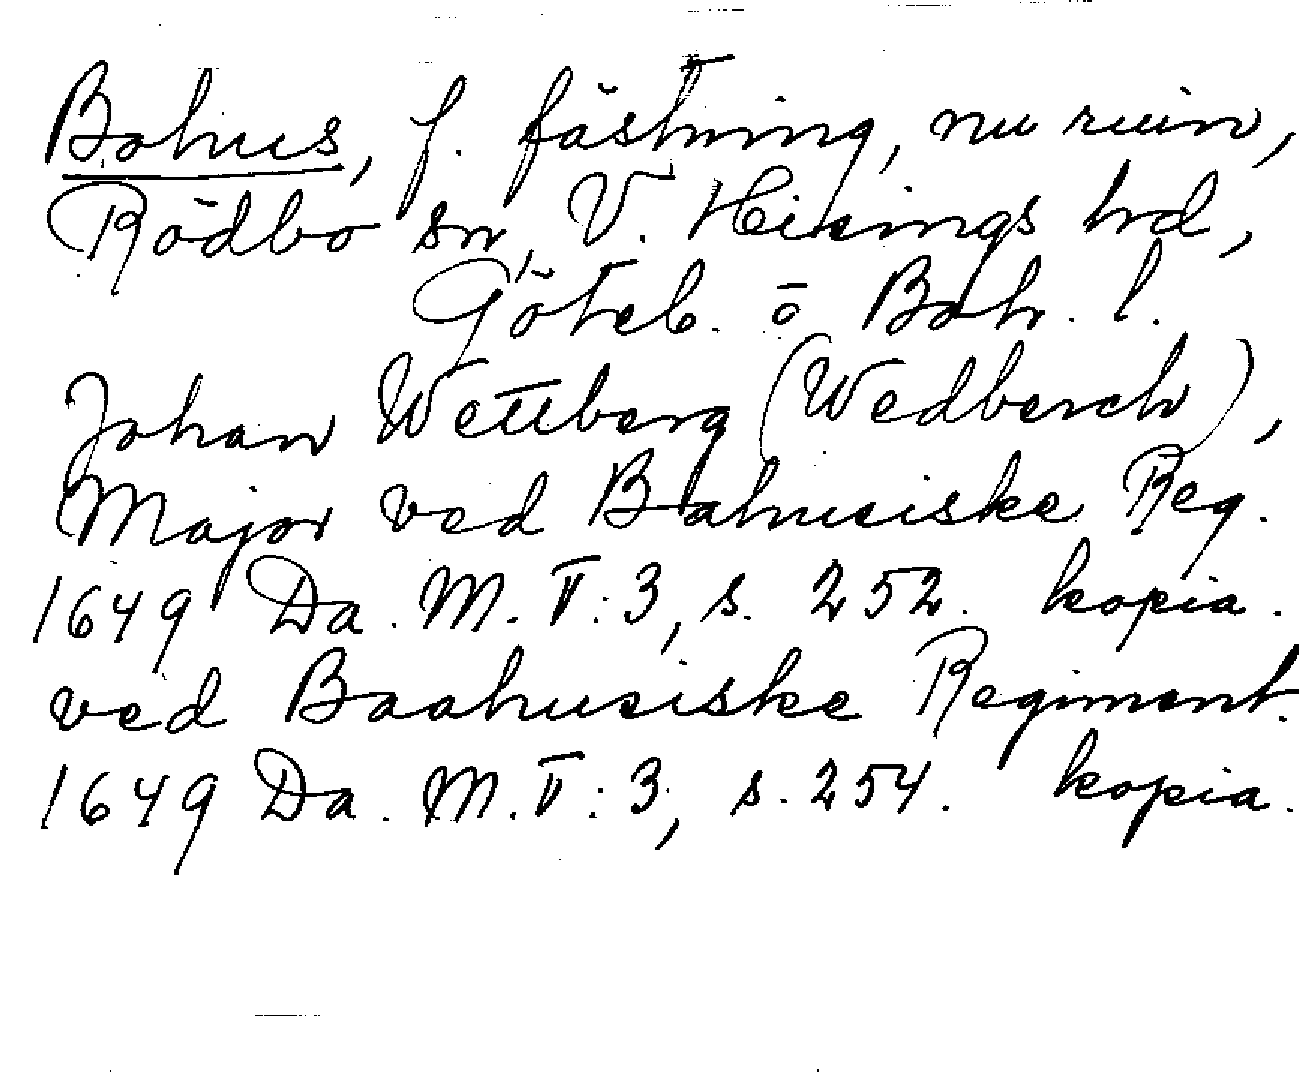 Bohus, f. fästning, nu ruin,
Rödbo sn, V. Hisings hd,
Göteb. o Boh. l.
Johan Wettberg (Wedberch),
Major ved Bahusiske Reg.
1649 Da. M. V:3, s. 252. kopia.
ved Baahusiske Regiment.
1649 Da. M. V:3, s. 254. kopia.